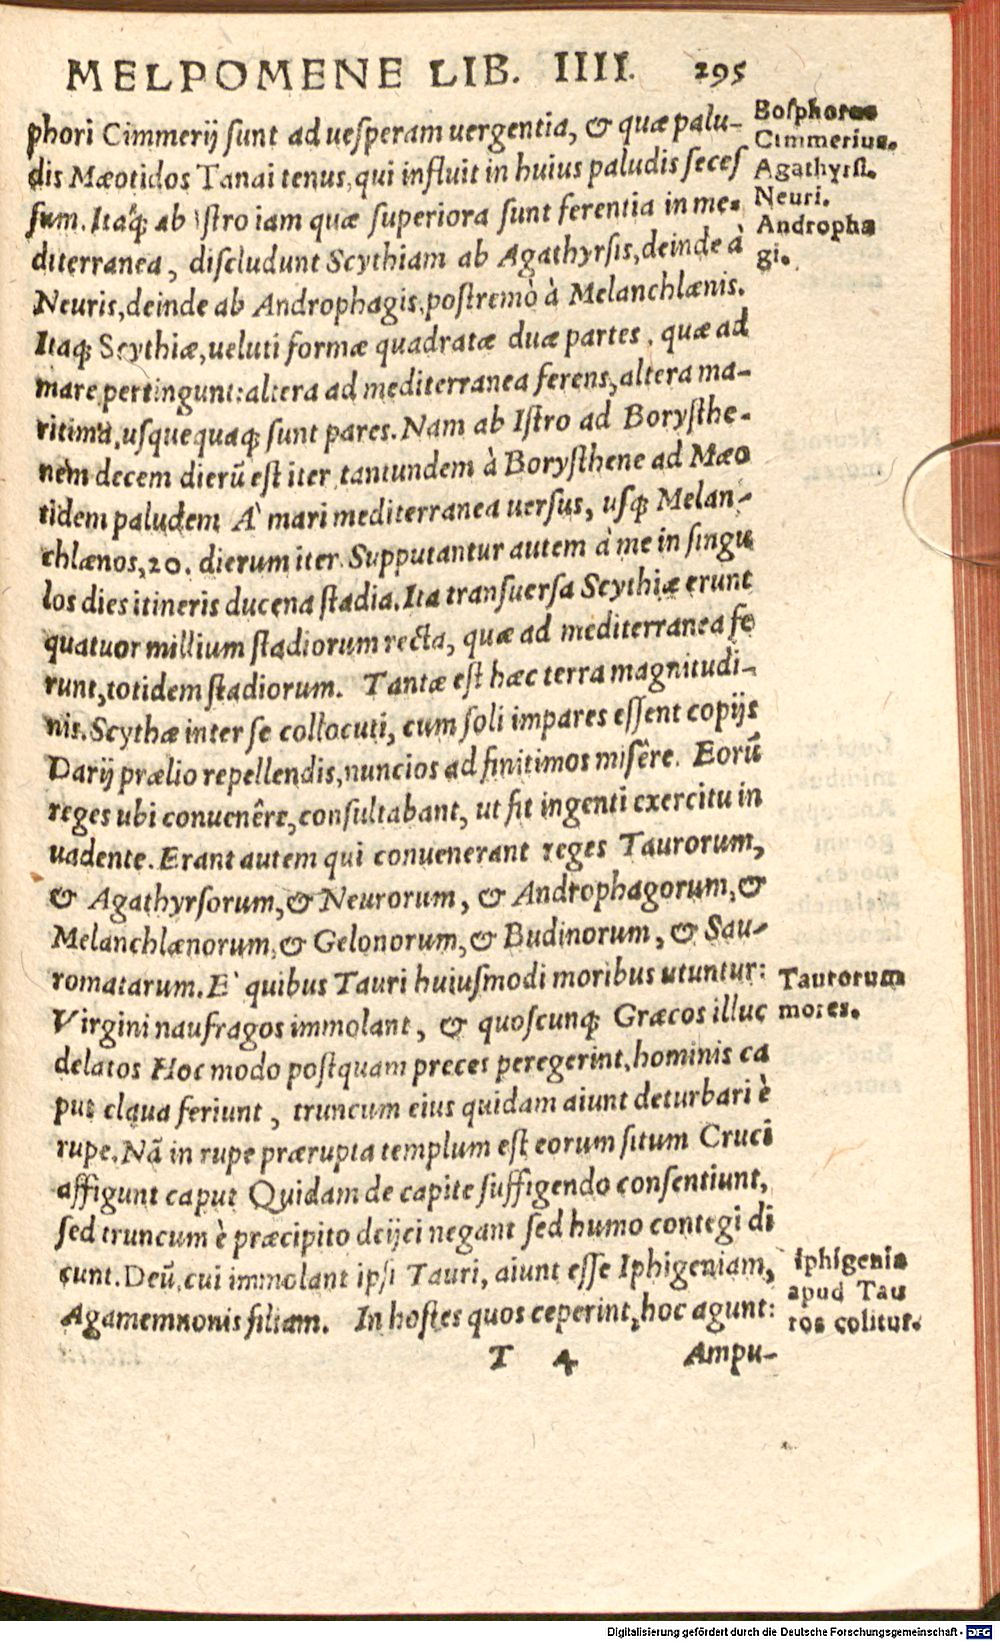 MELPOMENE LIB. IIII. 295
phori Cimmerij sunt ad uesperam uergentia, & quæ palu-
dis Mæotidos Tanai tenus, qui influit in huius paludis seces
sum. Itaq; ab Istro iam quæ superiora sunt ferentia in me-
diterranea, discludunt Scythiam ab Agathyrsis, deinde à
Neuris, deinde ab Androphagis, postremò à Melanchlænis.
Itaq; Scythiæ, ueluti formæ quadratæ duæ partes, quæ ad
mare pertingunt: altera ad mediterranea ferens, altera ma-
ritima, usquequaq; sunt pares. Nam ab Istro ad Borysthe-
nem decem dierū est iter tantundem à Borysthene ad Mæo
tidem paludem A` mari mediterranea uersus, usq; Melan-
chlænos, 20. dierum iter. Supputantur autem à me in singu
los dies itineris ducena stadia. Ita transuersa Scythiæ erunt
quatuor millium stadiorum recta, quæ ad mediterranea fe
runt, totidem stadiorum. Tantæ est hæc terra magnitudi-
nis. Scythæ inter se collocuti, cum soli impares essent copijs
Darij prælio repellendis, nuncios ad finitimos misêre. Eorū
reges ubi conuenêre, consultabant, ut fit ingenti exercitu in
uadente. Erant autem qui conuenerant reges Taurorum,
& Agathyrsorum, & Neurorum, & Androphagorum, &
Melanchlænorum, & Gelonorum, & Budinorum, & Sau-
romatarum. E` quibus Tauri huiusmodi moribus utuntur:
Virgini naufragos immolant, & quoscunq; Græcos illuc
delatos Hoc modo postquam preces peregerint, hominis ca
put claua feriunt, truncum eius quidam aiunt deturbari è
rupe. Nā in rupe prærupta templum est eorum situm Cruci
affigunt caput Quidam de capite suffigendo consentiunt,
sed truncum è præcipito deijci negant sed humo contegi di
cunt. Deū, cui immolant ipsi Tauri, aiunt esse Iphigeniam,
Agamemnonis filiam. In hostes quos ceperint, hoc agunt:
T 4 Ampu-
Bosphoros
Cimmerius.
Agathyrsi.
Neuri.
Andropha
gi.
Taurorum
mores.
Iphigenia
apud Tau
ros colitur.
Digitalisierung gefördert durch die Deutsche Forschungsgemeinschaft - DFG